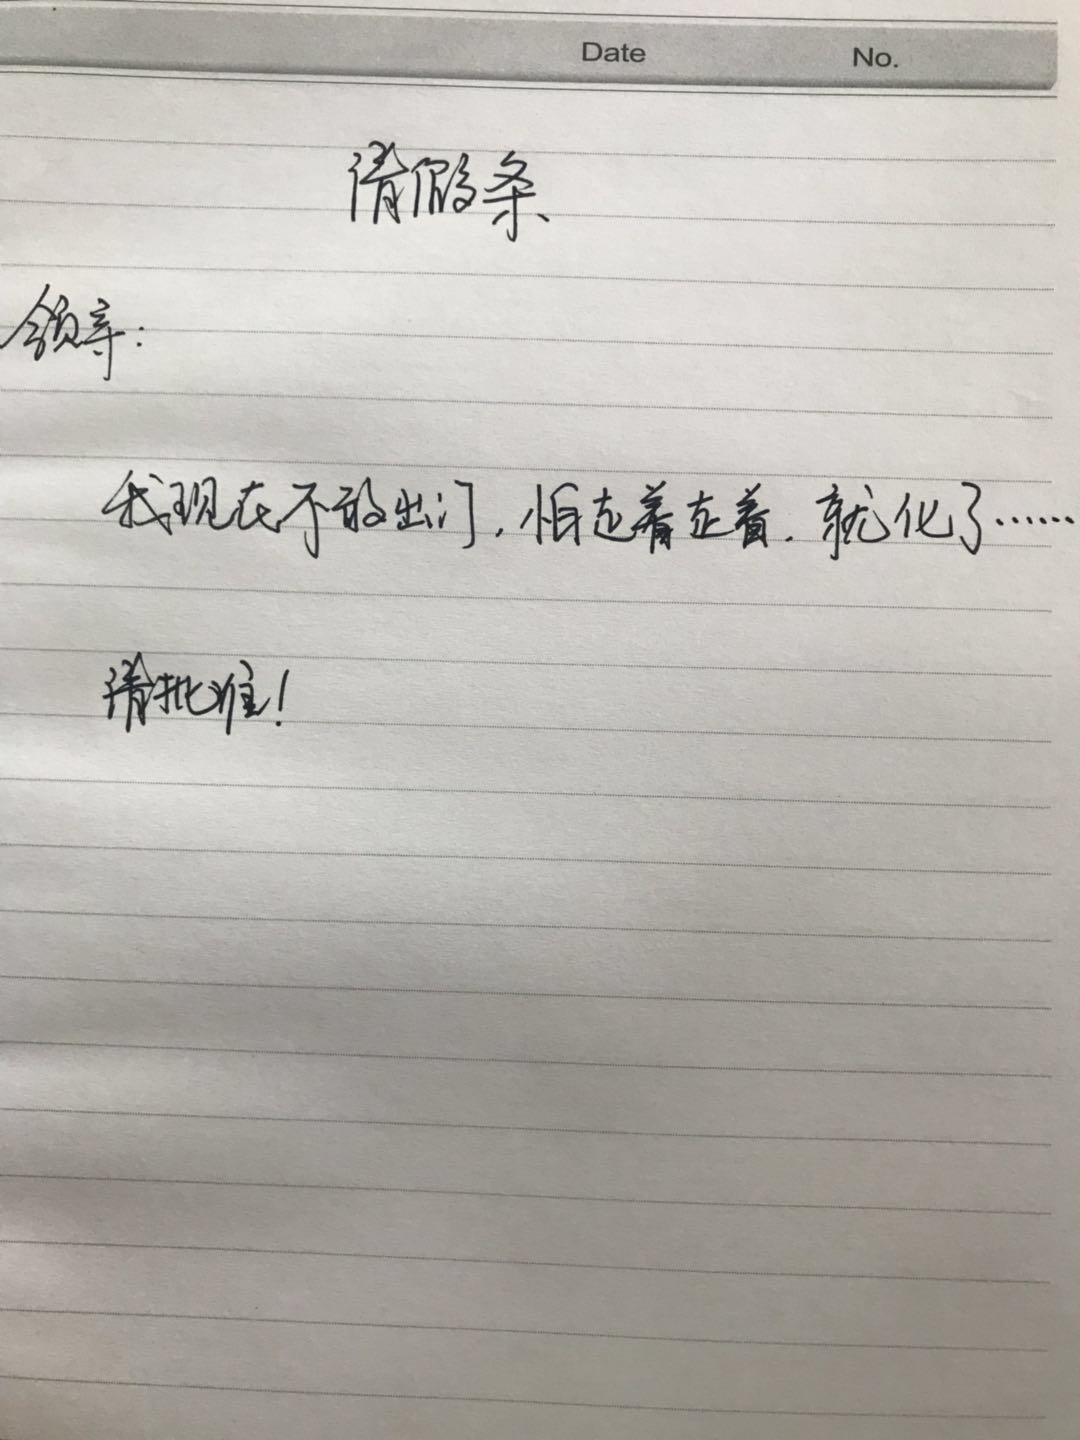 Date No.
请假条
领导:
我现在不敢出门,怕走着走着,就化了……
请批准!